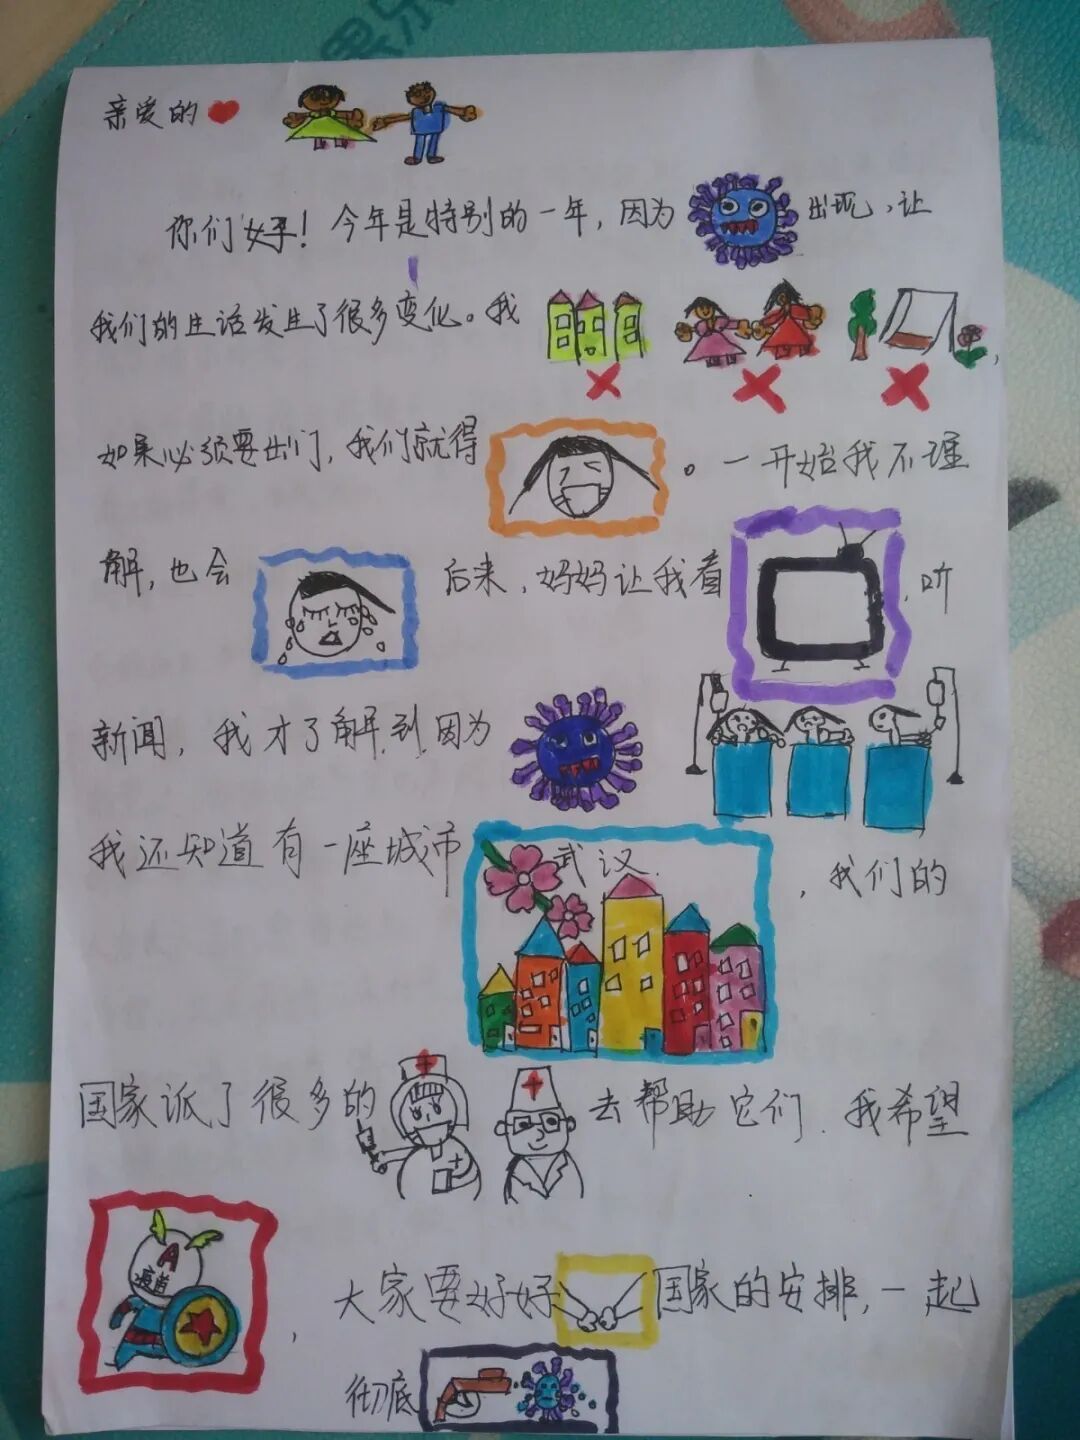 亲爱的
你们好！今年是特别的一年，因为出现，让
我们的生活发生了很多变化。我，
如果必须要出门，我们就得。一开始我不理
解，也会后来，妈妈让我看，听
新闻，我才了解到因为
我还知道有一座城市武汉，我们的
国家派了很多的去帮助它们．我希望
A
疫苗
，大家要好好国家的安排，一起
彻底